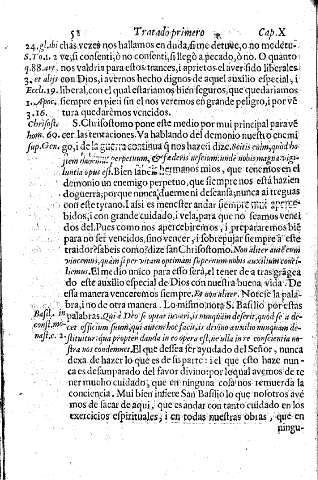 58 Tratado primero Cap. X
24. glabi chas vezes nos hallamos en duda, si me detuve, o no me detu-
S. To. 1. 2 ve, si consentì, ò no consentì, si lleguè a pecado, ò no. O quanto
q. 88. art. nos valdria para estos trances, i aprietos el aver sido liberales
3. et alijs con Dios, i avernos hecho dignos de aquel auxilio especial, i
Eccl. 19. liberal, con el qual estariamos bien seguros, que quedariamos
1. Apoc, siempre en pie: i sin el nos veremos en grande peligro, i por vẽ
3. 16. tura quedarèmos vencidos.
Chrisost. S. Chrysostomo pone este medio por mui principal para vẽ
hom. 60. cer las tentaciones. Va hablando del demonio nuestro enemi
sup. Gen. go, i de la guerra continua q̃ nos hazen dize. Scitis enim, quod
hostem perpetuum, & fœderis nescium: unde nobis magna vigi-
luntia opus est. Bien sabeis hermanos mios, que tenemos en el
demonio un enemigo perpetuo, que siempre nos està hazien
do guerra; por que nunca duerme ni descansa, nunca ai treguas
con este tyrano. I assi es menester andar siempre mui aperce-
bidos, i con grande cuidado, i vela, para que no seamos venci
dos del. Pues como nos apercebiremos, i prepararemos biẽ
para no ser vencidos, sino vencer, i sobrepujar siempre a este
traidor? sabeis como? dize san Chrisostomo. Non aliter autem
vincemus, quàm si per vitam optimam supernum nobis auxilium conci-
liemus. El medio unico para esso serà, el tener de atras grãgea
do este auxilio especial de Dios con nuestra buena vida. De
essa manera venceremos siempre. Et non aliter. Notese la pala-
bra, i no de otra manera. Lo mismo nota S. Basilio por estas
Basil. in palabras. Qui à Deo se optat iuvari, is nunquam deserit, quod se de
const. mo- cet officium suum, qui autem hoc facit, is divino auxilio nunquam de-
nast. c. 2. stituitur: qua propter danda in eo opera est, ne ulla in re conscientia no-
stra nos condemnet. El que dessea ser ayudado del Señor, nunca
dexa de hazer lo que es de su parte: i el que esto haze nun-
ca es desamparado del favor divino: por lo qual avemos de te
ner mucho cuidado, que en ninguna cosa nos remuerda la
conciencia. Mui bien infiere San Basilio lo que nosotros avè
mos de sacar de aqui, que es andar con tanto cuidado en los
exercicios espirituales, i en todas nuestras obras, que en
ningu-